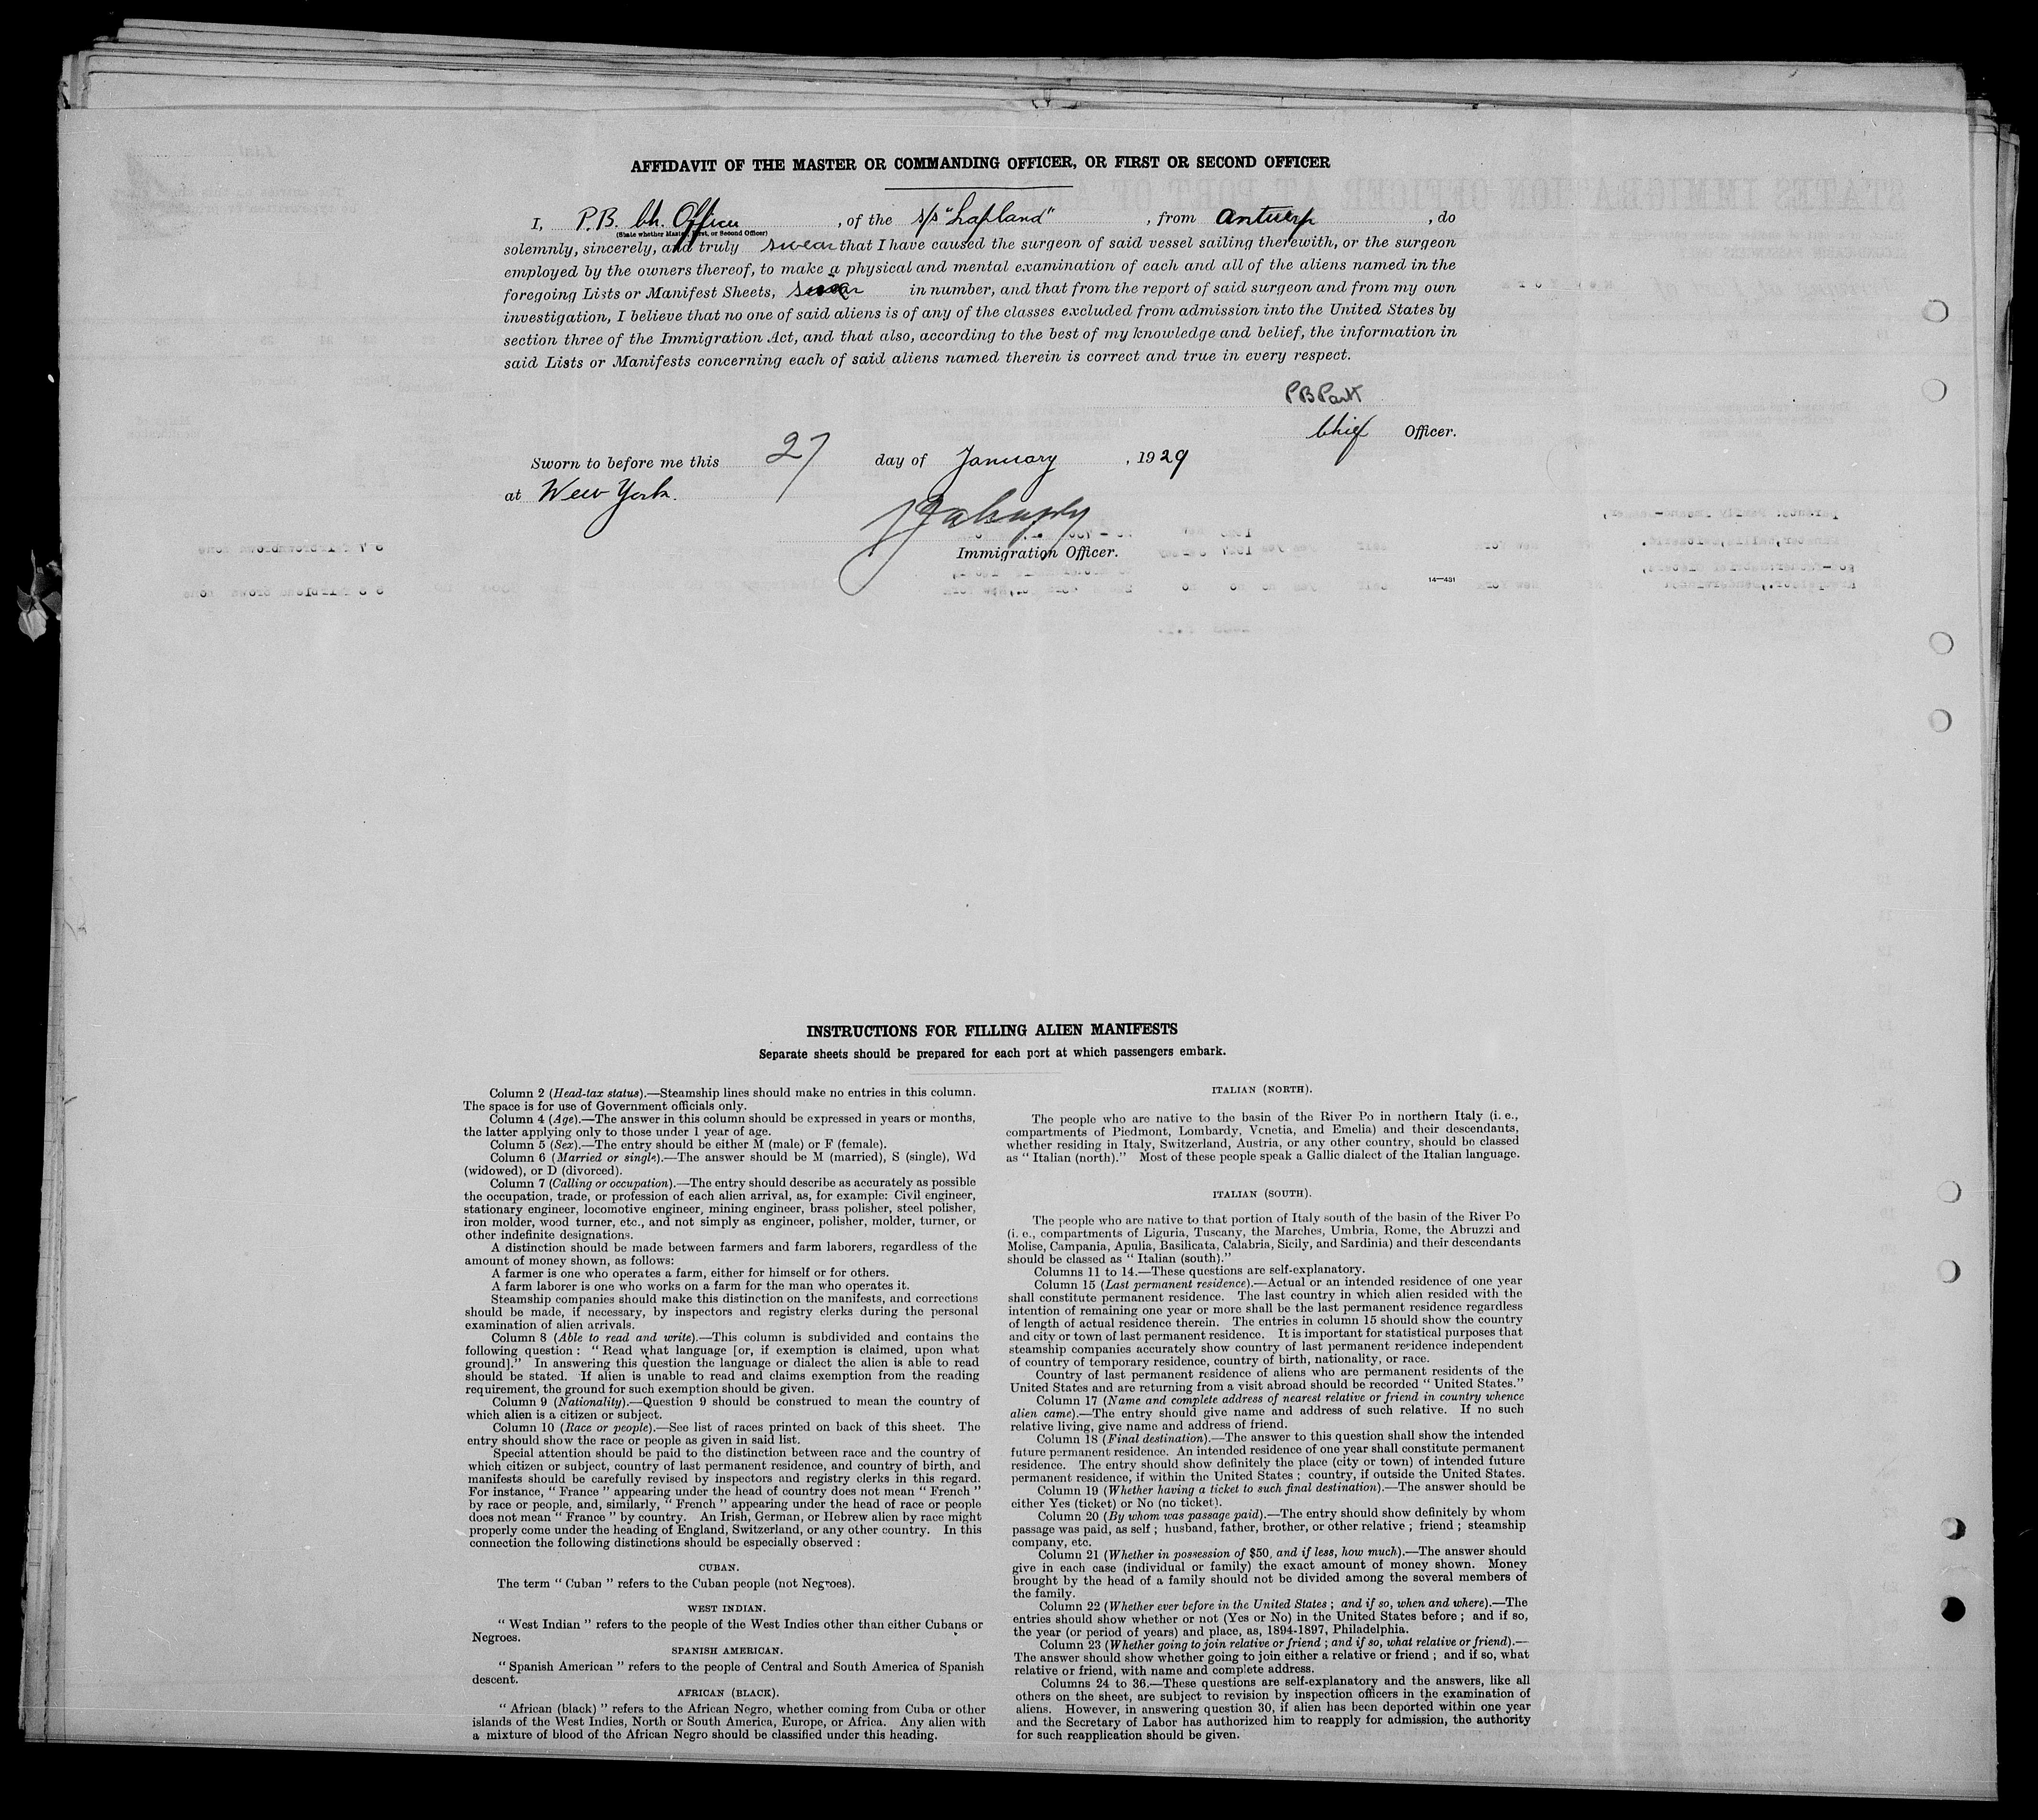 AFFIDAVIT OF THE MASTER OR COMMANDING OFFICER, OR FIRST OR SECOND OFFICER
I, P.B. Ch. Officer, of the s/s "Lapland", from Antwerp, do
(State whether Master, First, or Second Officer)
solemnly, sincerely, and truly swear that I have caused the surgeon of said vessel sailing therewith, or the surgeon
employed by the owners thereof, to make a physical and mental examination of each and all of the aliens named in the
foregoing Lists or Manifest Sheets, in number, and that from the report of said surgeon and from my own
investigation, I believe that no one of said aliens is of any of the classes excluded from admission into the United States by
section three of the Immigration Act, and that also, according to the best of my knowledge and belief, the information in
said Lists or Manifests concerning each of said aliens named therein is correct and true in every respect.
PB Park
Chief Officer.
Sworn to before me this 27 day of January, 1929
at New York.
Immigration Officer.
14—431
INSTRUCTIONS FOR FILLING ALIEN MANIFESTS
Separate sheets should be prepared for each port at which passengers embark.
Column 2 (Head-tax status).—Steamship lines should make no entries in this column.
The space is for use of Government officials only.
Column 4 (Age).—The answer in this column should be expressed in years or months,
the latter applying only to those under 1 year of age.
Column 5 (Sex).—The entry should be either M (male) or F (female).
Column 6 (Married or single).—The answer should be M (married), S (single), Wd
(widowed), or D (divorced).
Column 7 (Calling or occupation).—The entry should describe as accurately as possible
the occupation, trade, or profession of each alien arrival, as, for example: Civil engineer,
stationary engineer, locomotive engineer, mining engineer, brass polisher, steel polisher,
iron molder, wood turner, etc., and not simply as engineer, polisher, molder, turner, or
other indefinite designations.
A distinction should be made between farmers and farm laborers, regardless of the
amount of money shown, as follows:
A farmer is one who operates a farm, either for himself or for others.
A farm laborer is one who works on a farm for the man who operates it.
Steamship companies should make this distinction on the manifests, and corrections
should be made, if necessary, by inspectors and registry clerks during the personal
examination of alien arrivals.
Column 8 (Able to read and write).—This column is subdivided and contains the
following question: "Read what language [or, if exemption is claimed, upon what
ground]." In answering this question the language or dialect the alien is able to read
should be stated. If alien is unable to read and claims exemption from the reading
requirement, the ground for such exemption should be given.
Column 9 (Nationality).—Question 9 should be construed to mean the country of
which alien is a citizen or subject.
Column 10 (Race or people).—See list of races printed on back of this sheet. The
entry should show the race or people as given in said list.
Special attention should be paid to the distinction between race and the country of
which citizen or subject, country of last permanent residence, and country of birth, and
manifests should be carefully revised by inspectors and registry clerks in this regard.
For instance, "France" appearing under the head of country does not mean "French"
by race or people, and, similarly, "French" appearing under the head of race or people
does not mean "France" by country. An Irish, German, or Hebrew alien by race might
properly come under the heading of England, Switzerland, or any other country. In this
connection the following distinctions should be especially observed:
CUBAN.
The term "Cuban" refers to the Cuban people (not Negroes).
WEST INDIAN.
"West Indian" refers to the people of the West Indies other than either Cubans or
Negroes.
SPANISH AMERICAN.
"Spanish American" refers to the people of Central and South America of Spanish
descent.
AFRICAN (BLACK).
"African (black)" refers to the African Negro, whether coming from Cuba or other
islands of the West Indies, North or South America, Europe, or Africa. Any alien with
a mixture of blood of the African Negro should be classified under this heading.
ITALIAN (NORTH).
The people who are native to the basin of the River Po in northern Italy (i. e.,
compartments of Piedmont, Lombardy, Venetia, and Emelia) and their descendants,
whether residing in Italy, Switzerland, Austria, or any other country, should be classed
as "Italian (north)." Most of these people speak a Gallic dialect of the Italian language.
ITALIAN (SOUTH).
The people who are native to that portion of Italy south of the basin of the River Po
(i. e., compartments of Liguria, Tuscany, the Marches, Umbria, Rome, the Abruzzi and
Molise, Campania, Apulia, Basilicata, Calabria, Sicily, and Sardinia) and their descendants
should be classed as "Italian (south)."
Columns 11 to 14.—These questions are self-explanatory.
Column 15 (Last permanent residence).—Actual or an intended residence of one year
shall constitute permanent residence. The last country in which alien resided with the
intention of remaining one year or more shall be the last permanent residence regardless
of length of actual residence therein. The entries in column 15 should show the country
and city or town of last permanent residence. It is important for statistical purposes that
steamship companies accurately show country of last permanent residence independent
of country of temporary residence, country of birth, nationality, or race.
Country of last permanent residence of aliens who are permanent residents of the
United States and are returning from a visit abroad should be recorded "United States."
Column 17 (Name and complete address of nearest relative or friend in country whence
alien came).—The entry should give name and address of such relative. If no such
relative living, give name and address of friend.
Column 18 (Final destination).—The answer to this question shall show the intended
future permanent residence. An intended residence of one year shall constitute permanent
residence. The entry should show definitely the place (city or town) of intended future
permanent residence, if within the United States; country, if outside the United States.
Column 19 (Whether having a ticket to such final destination).—The answer should be
either Yes (ticket) or No (no ticket).
Column 20 (By whom was passage paid).—The entry should show definitely by whom
passage was paid, as self; husband, father, brother, or other relative; friend; steamship
company, etc.
Column 21 (Whether in possession of $50, and if less, how much).—The answer should
give in each case (individual or family) the exact amount of money shown. Money
brought by the head of a family should not be divided among the several members of
the family.
Column 22 (Whether ever before in the United States; and if so, when and where).—The
entries should show whether or not (Yes or No) in the United States before; and if so,
the year (or period of years) and place, as, 1894-1897, Philadelphia.
Column 23 (Whether going to join relative or friend; and if so, what relative or friend).—
The answer should show whether going to join either a relative or friend; and if so, what
relative or friend, with name and complete address.
Columns 24 to 36.—These questions are self-explanatory and the answers, like all
others on the sheet, are subject to revision by inspection officers in the examination of
aliens. However, in answering question 30, if alien has been deported within one year
and the Secretary of Labor has authorized him to reapply for admission, the authority
for such reapplication should be given.